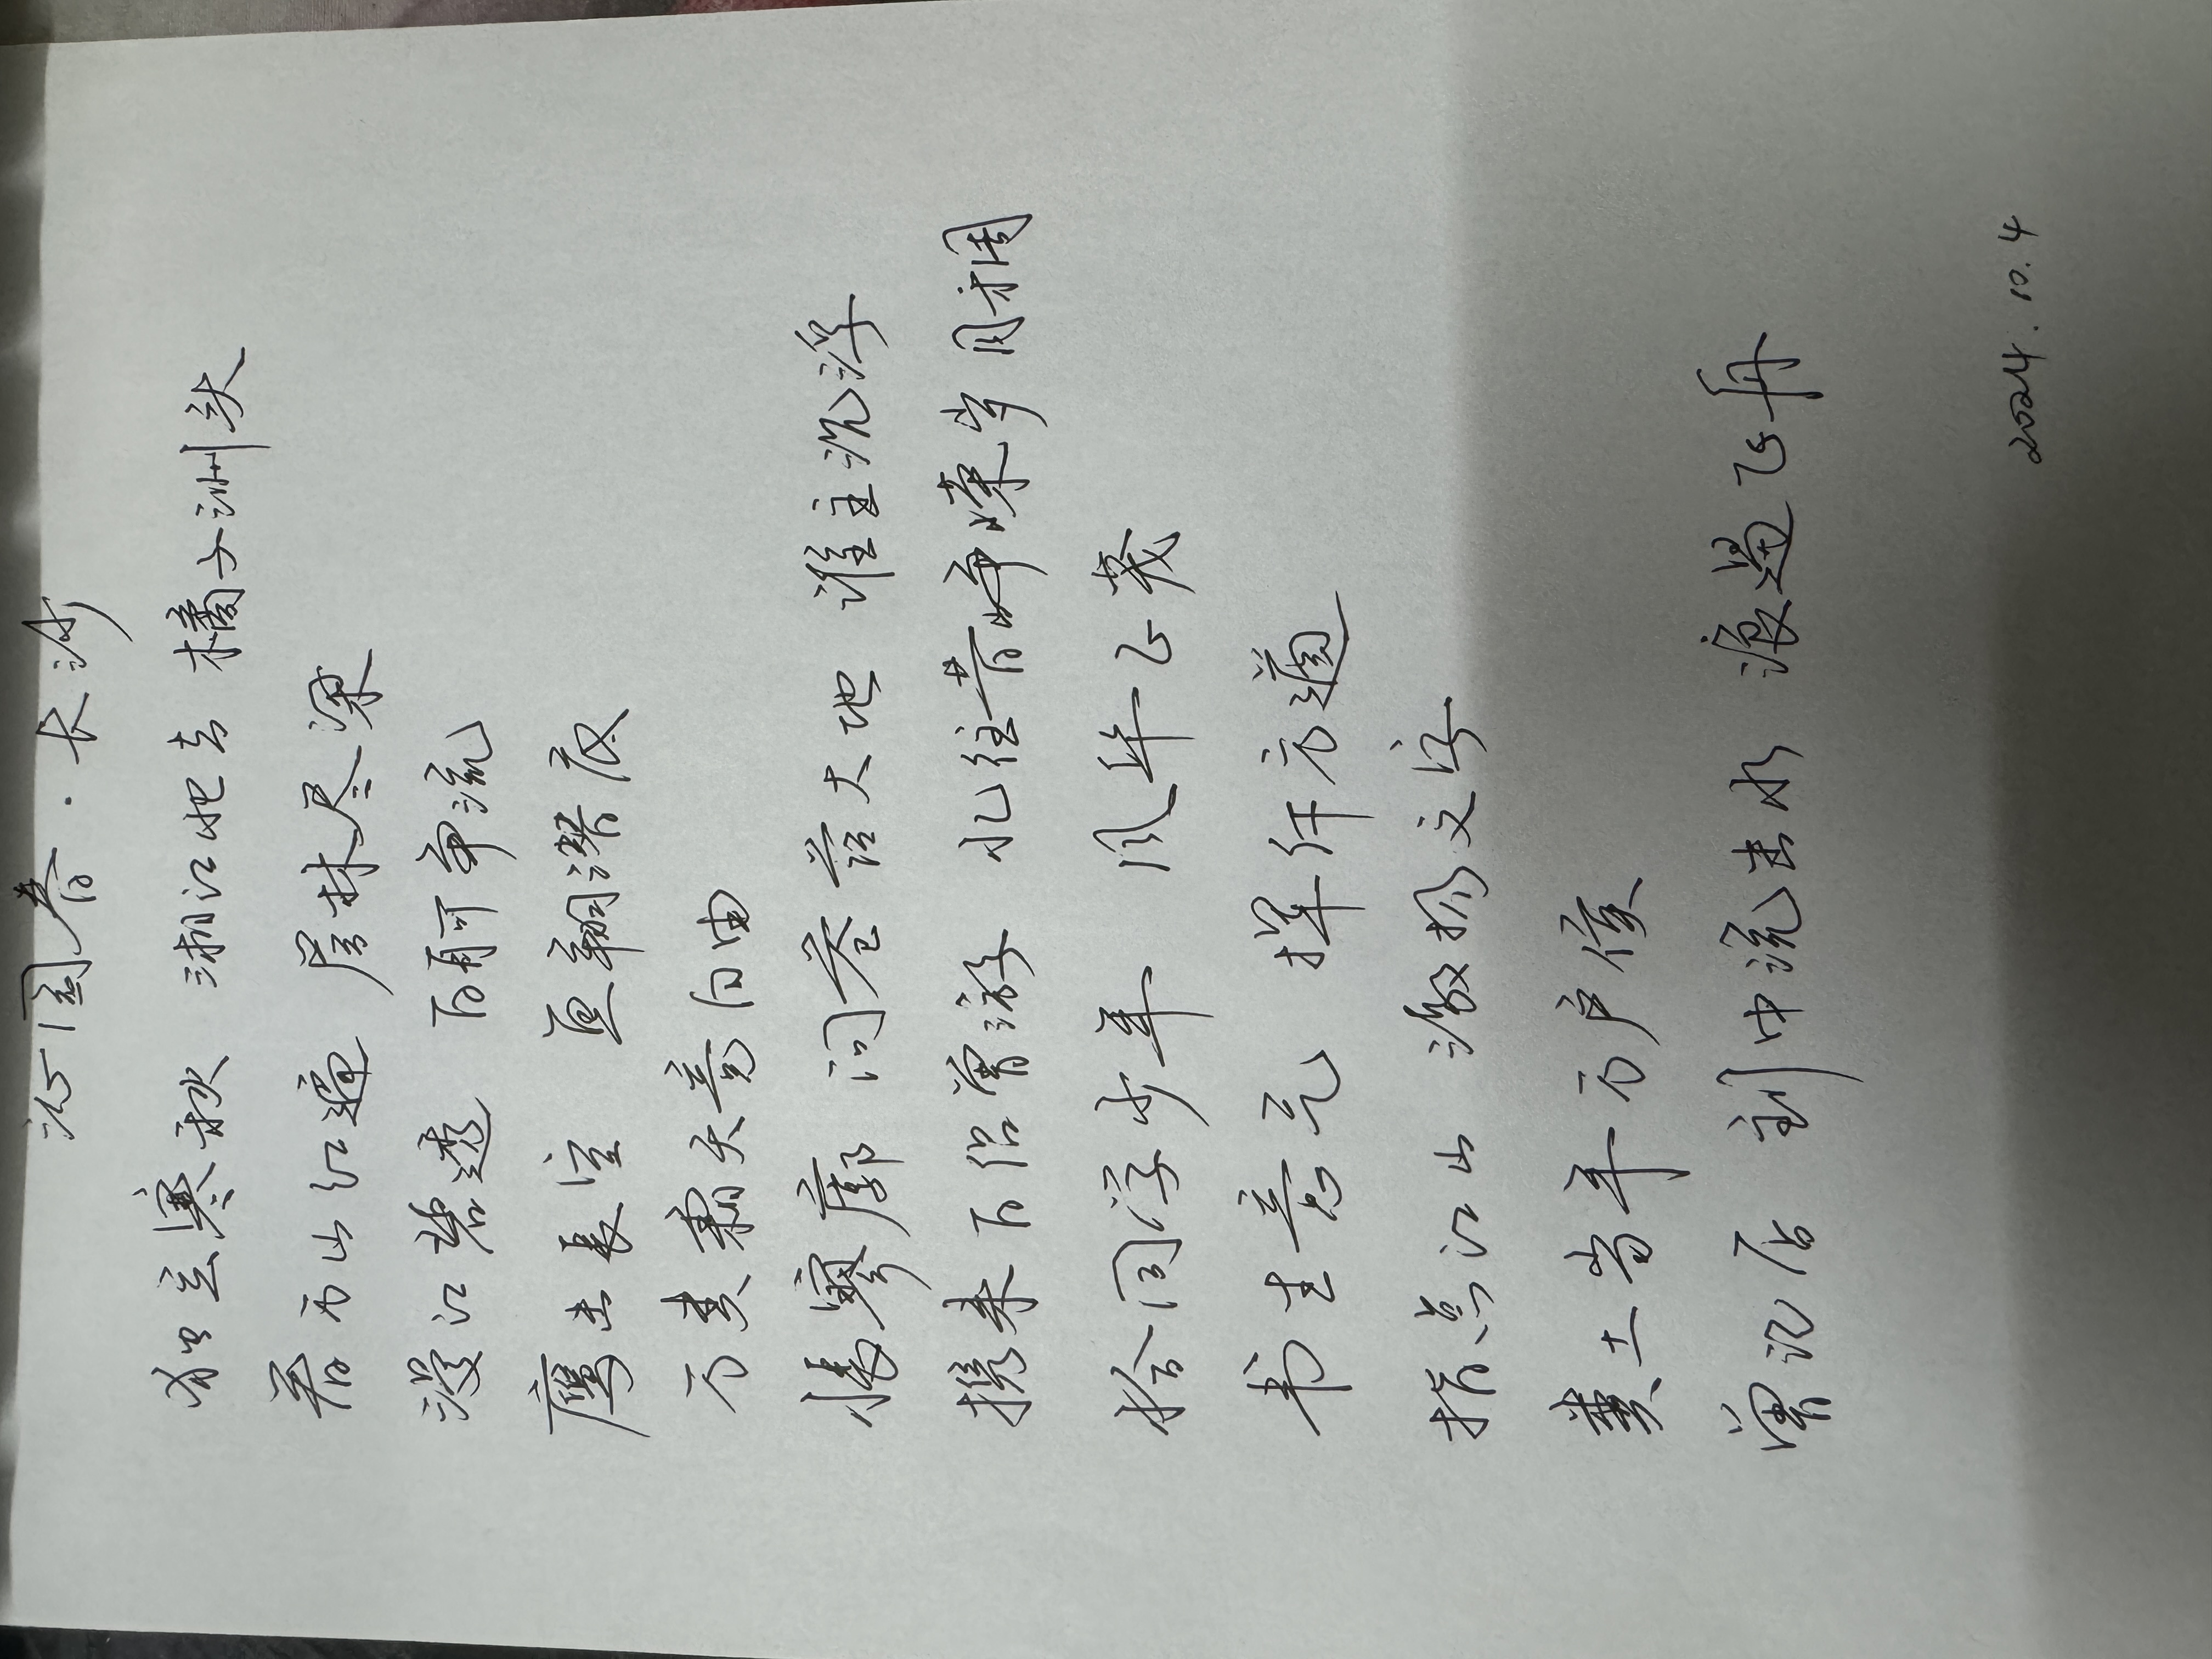 沁园春·长沙
独立寒秋 湘江北去 橘子洲头
看万山红遍 层林尽染
漫江碧透 百舸争流
鹰击長空 鱼翔潜底
万类霜天竞自由
怅寥廓 问苍茫大地 谁主沉浮
携来百侣曾游 忆往昔峥嵘岁月稠
恰同学少年 风华正茂
书生意气 挥斥方遒
指点江山 激扬文字
粪土当年万户侯
曾记否 到中流击水 浪遏飞舟
2024.10.4